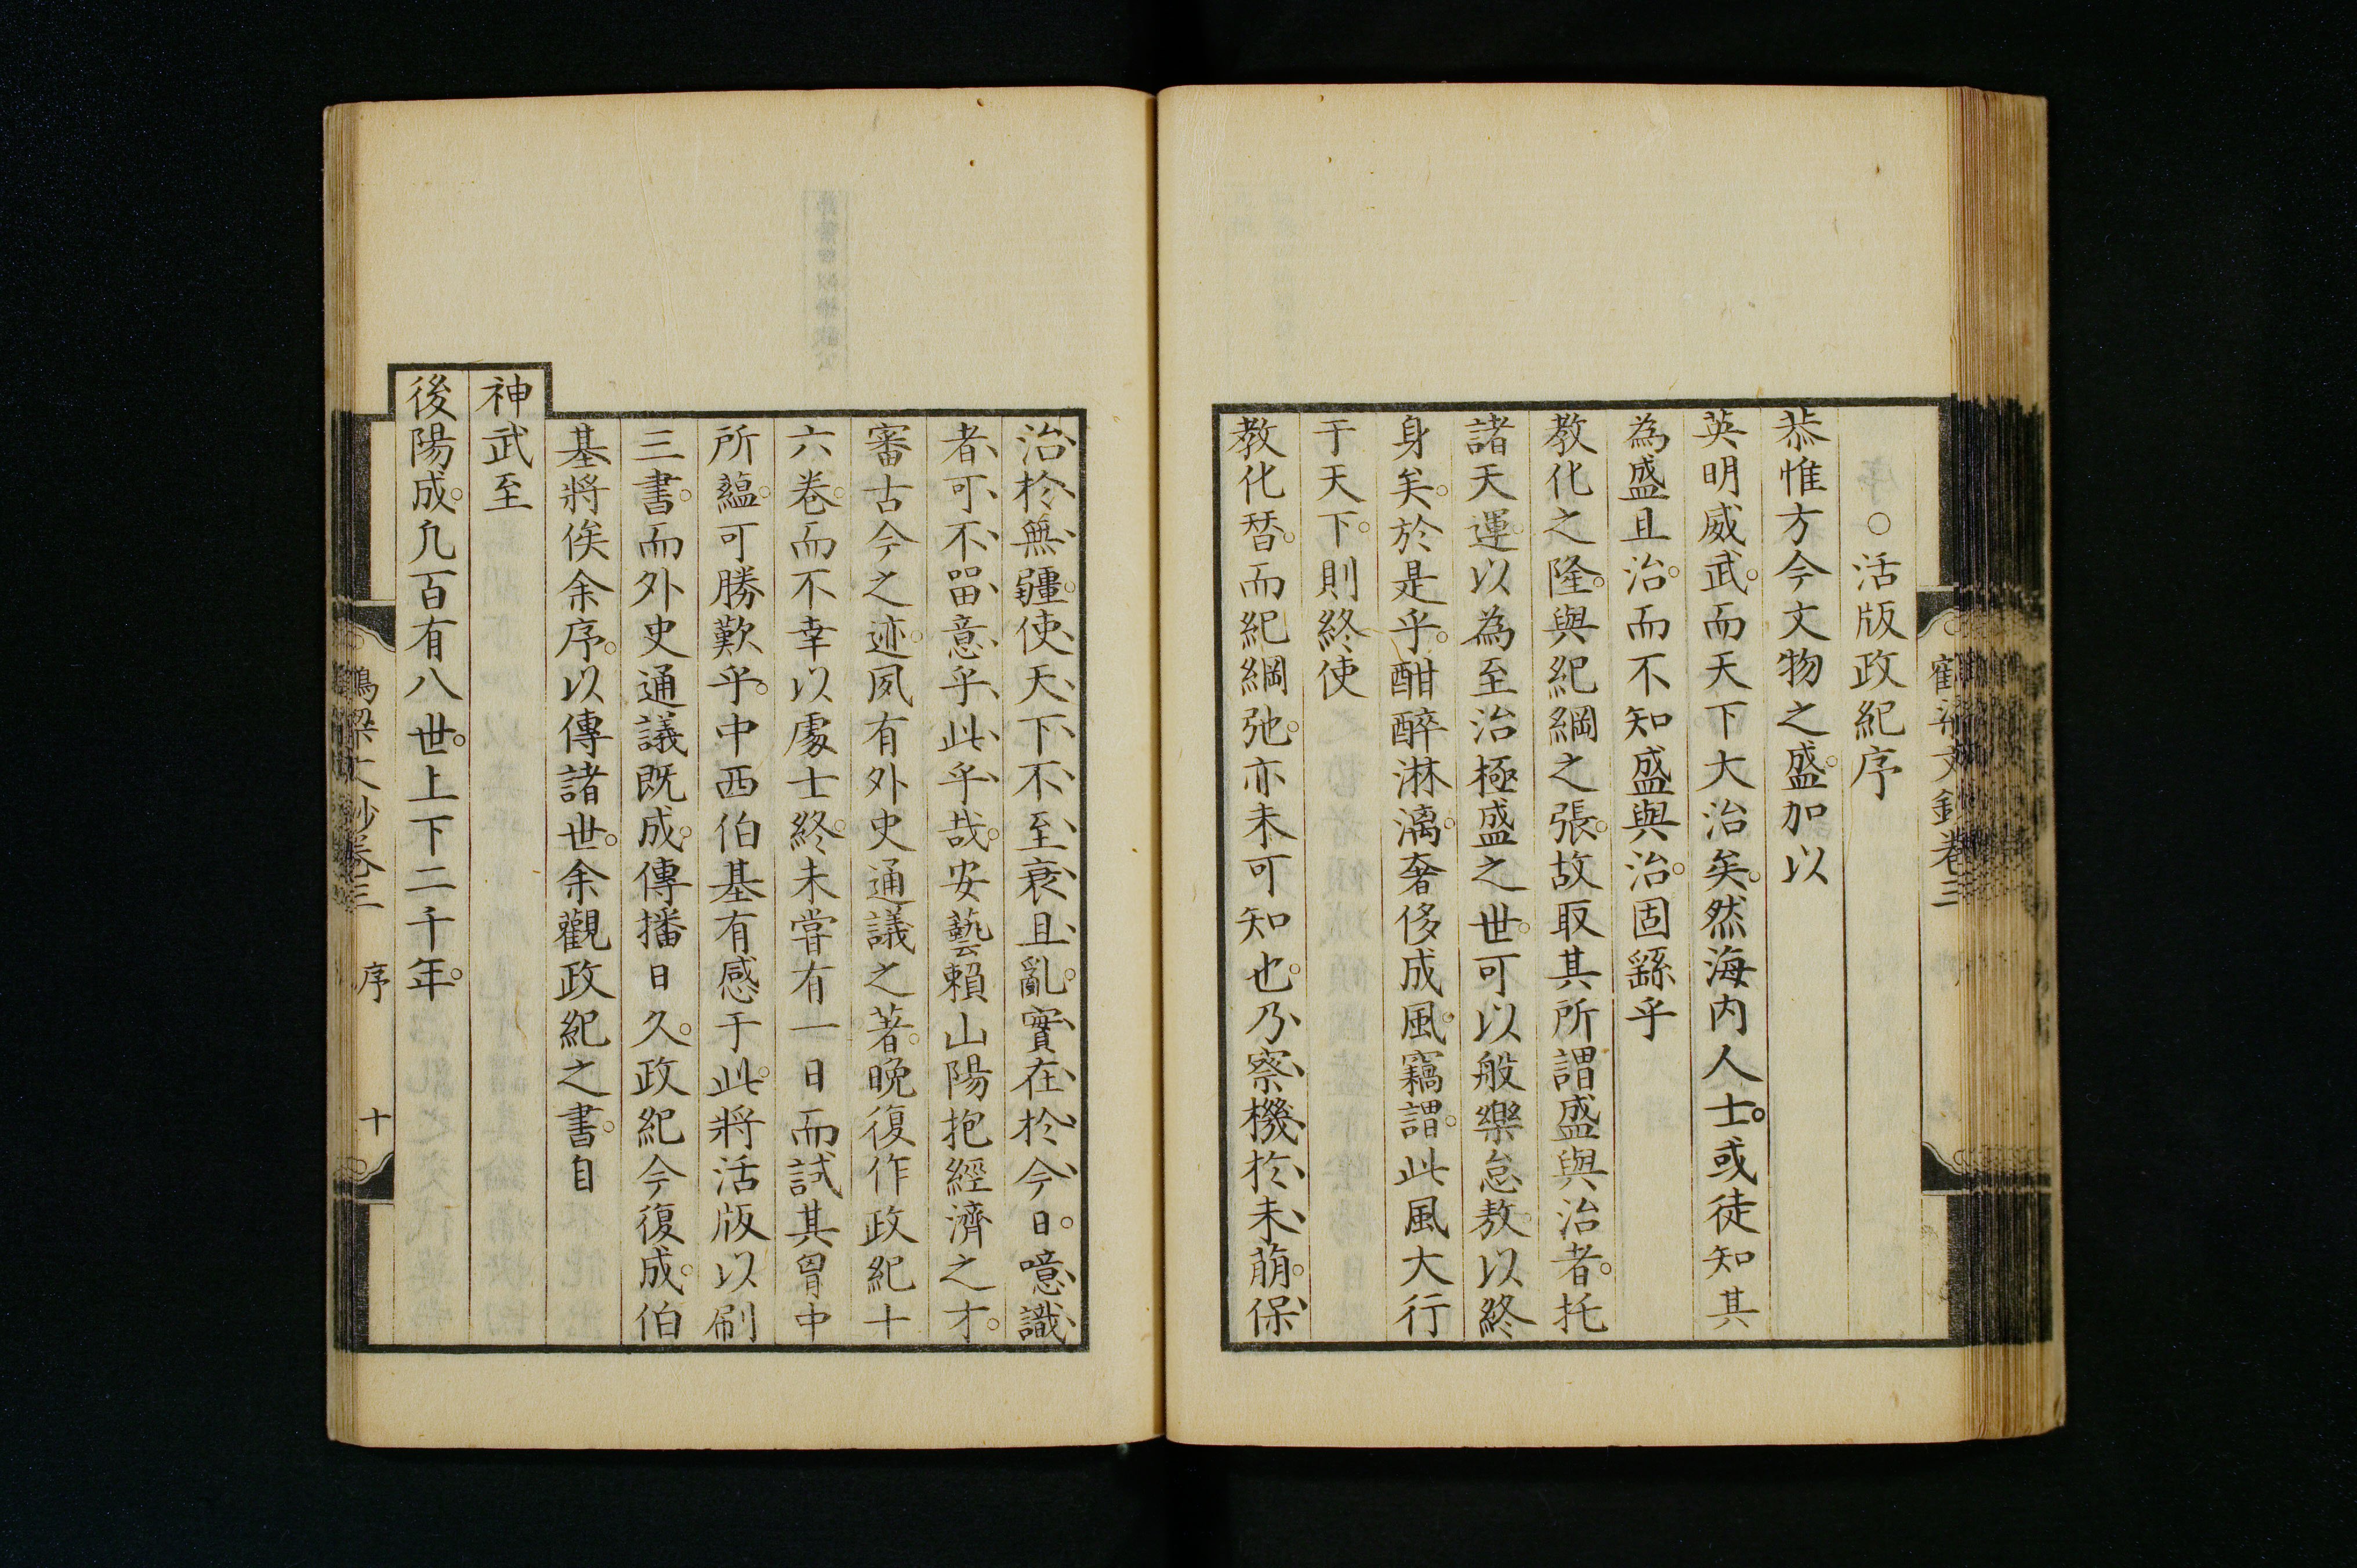 ○活版政紀序
恭惟方今文物之盛。加以
英明威武。而天下大治矣。然海内人士。或徒知其
為盛且治。而不知盛與治。固繇乎
教化之隆。與紀綱之張。故取其所謂盛與治者。托
諸天運。以為至治極盛之世。可以般樂怠敖。以終
身矣。於是乎。酣醉淋漓。奢侈成風。竊謂。此風大行
于天下。則終使
教化朁。而紀綱弛。亦未可知也。乃察機於未萠。保
治於無疆。使天下不至衰且亂。實在於今日。噫識
者可不畱意乎此乎哉。安藝賴山陽抱經濟之才。
審古今之迹。夙有外史通議之著。晩復作政紀十
六卷。而不幸以處士終。未嘗有一日而試其胷中
所蘊。可勝歎乎。中西伯基有感于此。將活版以刷
三書。而外史通議既成。傳播日久。政紀今復成。伯
基將俟余序。以傳諸世。余觀政紀之書。自
神武至
後陽成。凢百有八世。上下二千年。
卷三 序 十